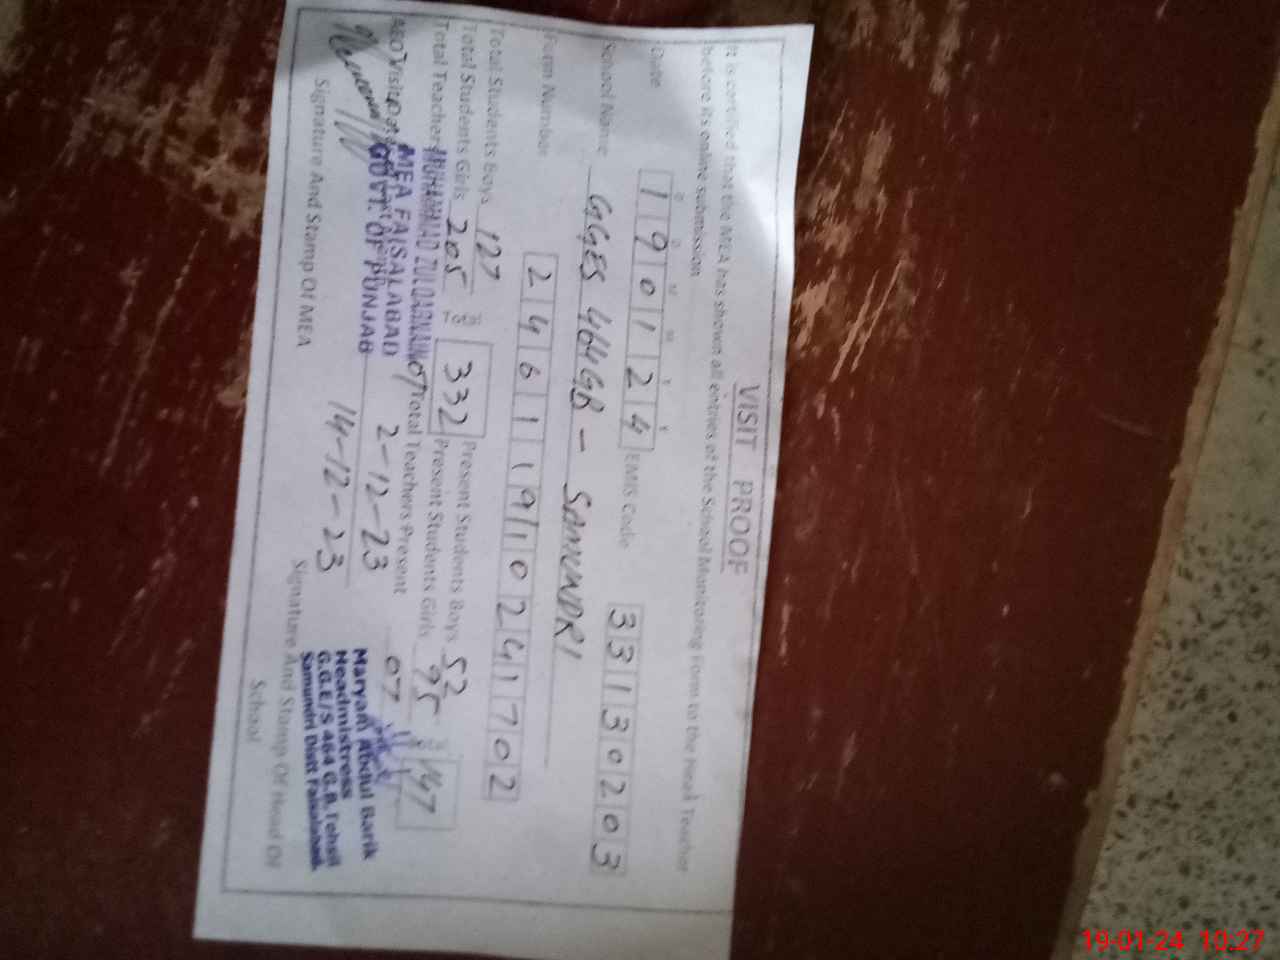 VISIT PROOF
It is certified that the MEA has shown all entries of the School Monitoring Form to the Head Teacher
before its online submission
D D M M Y Y
Date 190124 EMIS Code 33130203
School Name GGES 464GB - SAMUNDRI
Form Number 246119110241702
Total Students Boys 127 332 Present Students Boys 52 147
Total Students Girls 205 Present Students Girls 95
Total Teachers 07 Total Teachers Present 07
AEO Visit 2-12-23
14-12-23
MUHAMMAD ZULQARNAIN
MEA FAISALABAD
GOVT. OF PUNJAB
Signature And Stamp Of MEA
Maryam Abdul Barik
Headmistress
G.G.E/S 464 G.B. Tehsil
Samundri Distt Faisalabad
Signature And Stamp Of Head Of
School
19-01-24 10:27